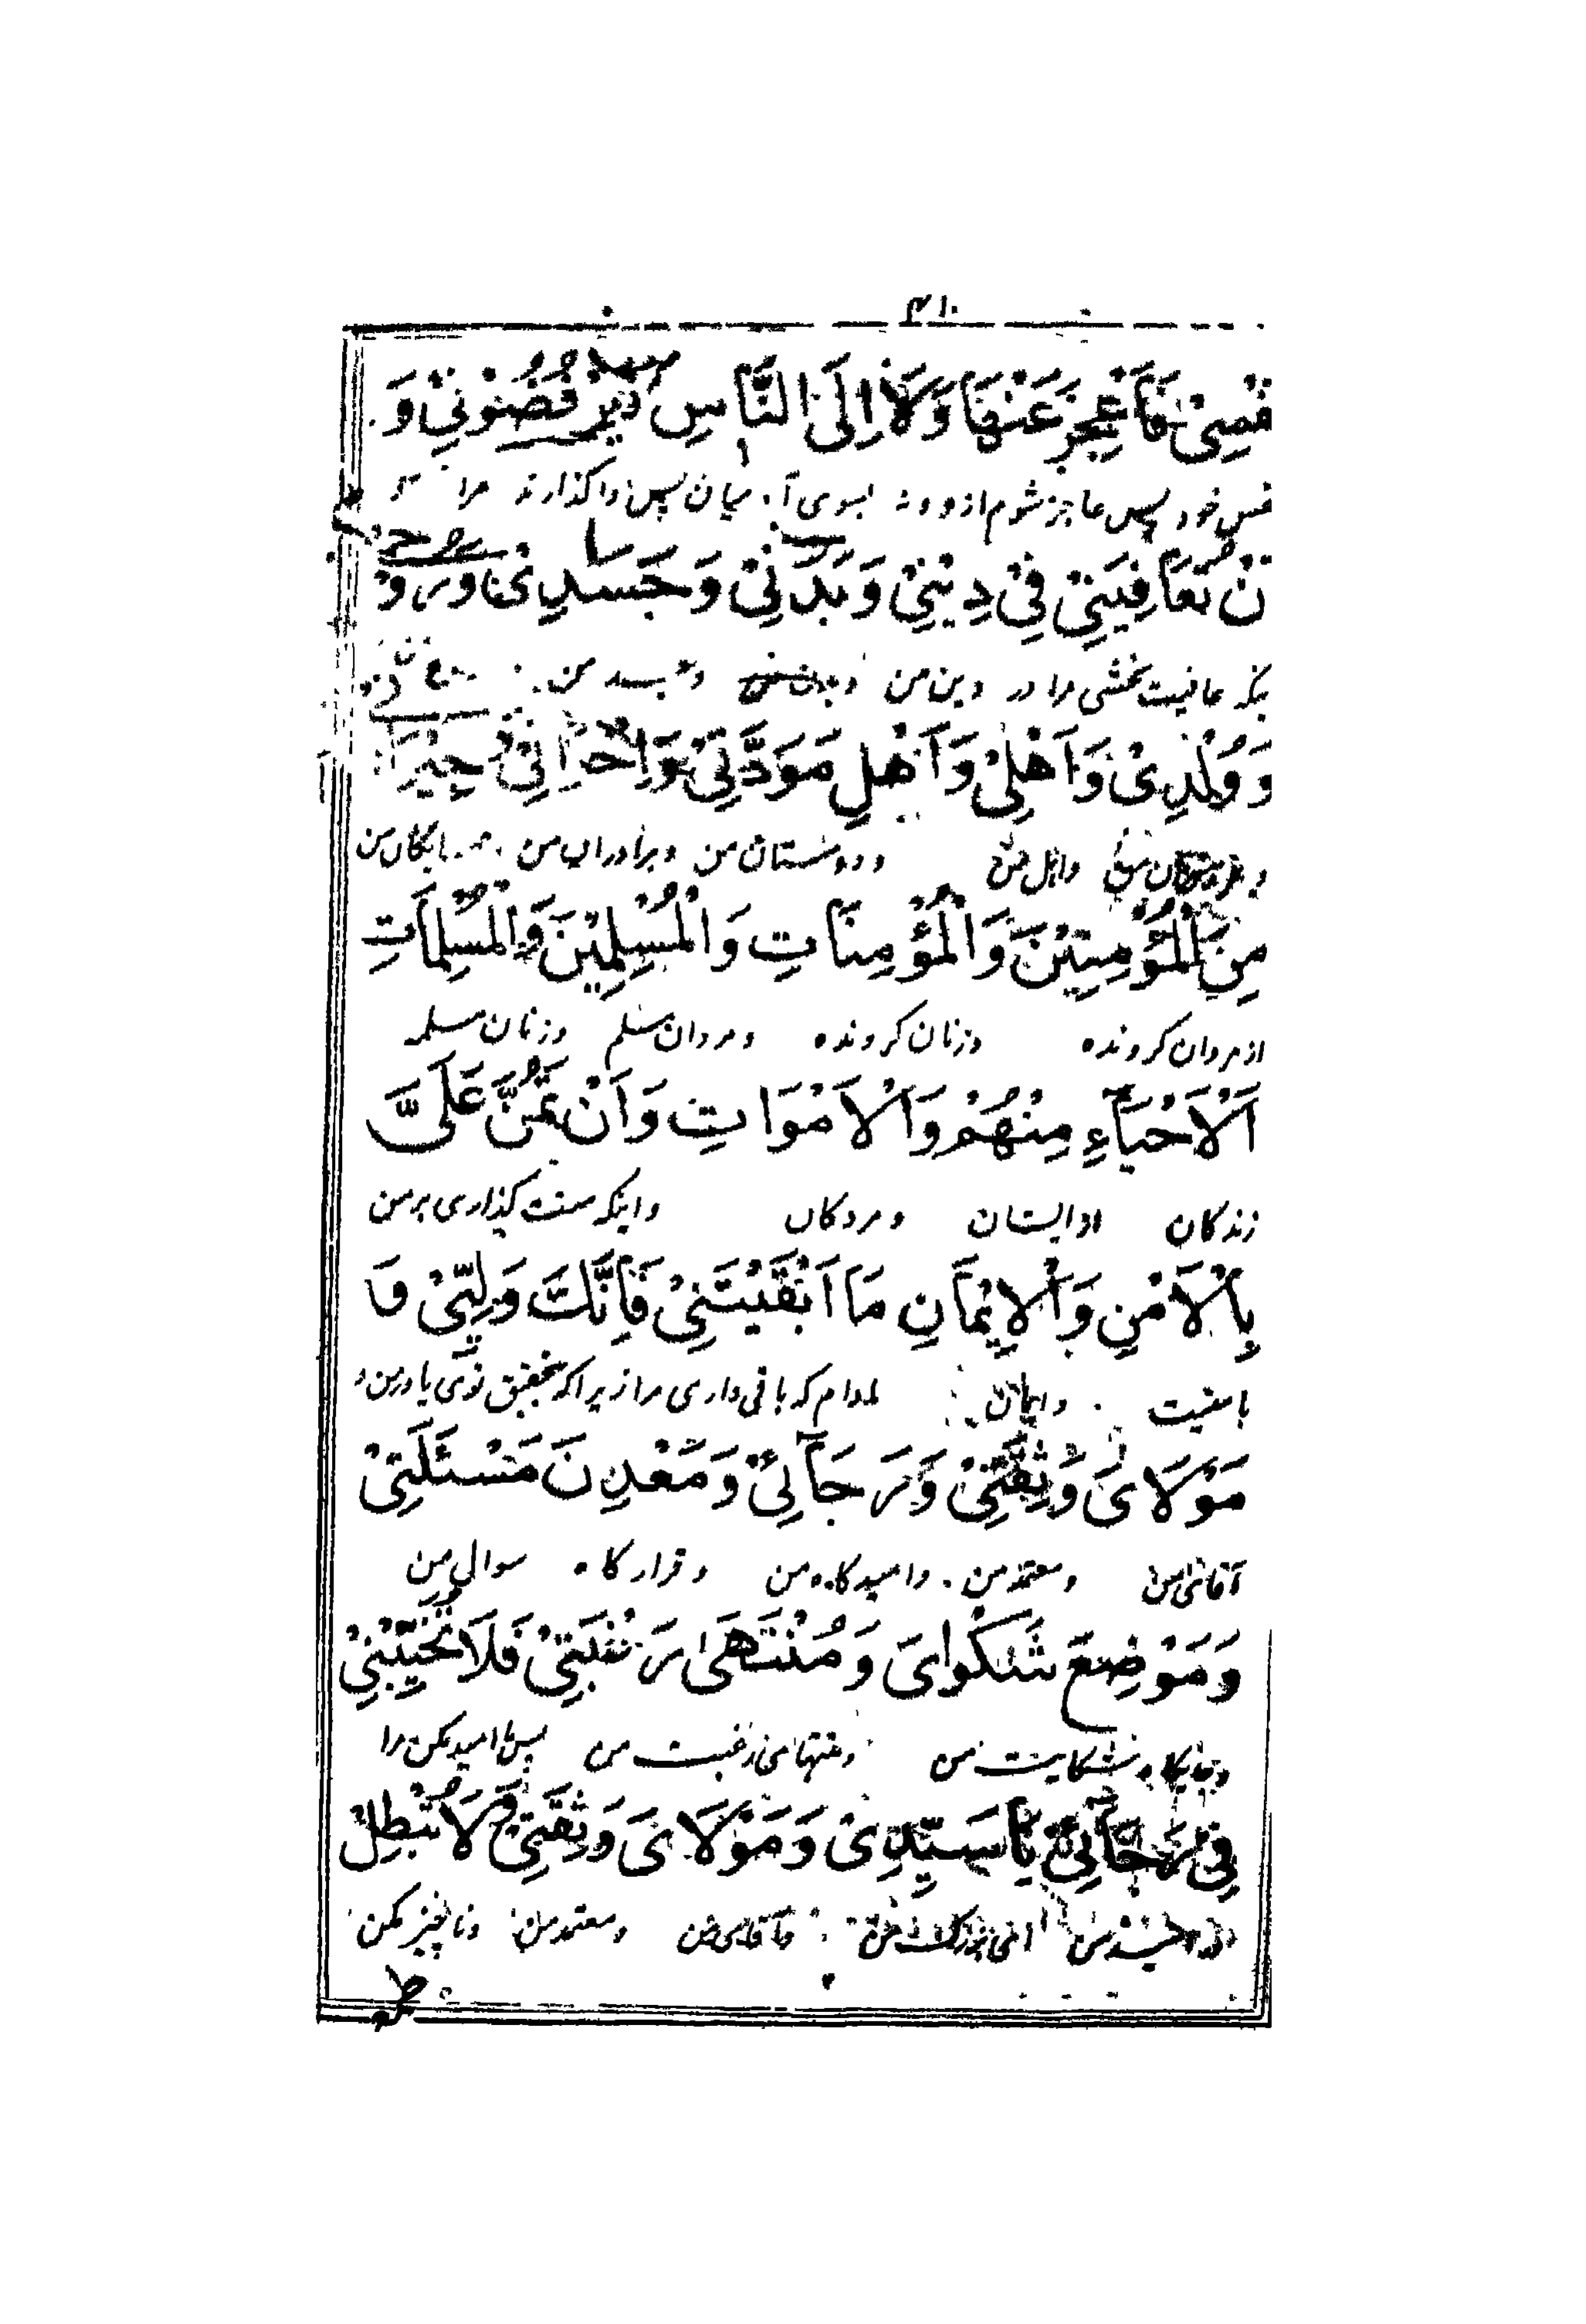 ۳۱۰
فْسِیْ فَاَعْجِزَ عَنْهَا وَلَا اِلَی النَّاسِ فَیَرْفُضُوْنِیْ وَ
فس خود پس عاجز شوم ازو و نه بسوی آدمیان پس واگذارند مرا
نْ تُعَافِیَنِیْ فِیْ دِیْنِیْ وَ بَدَنِیْ وَ جَسَدِیْ وَ رُوْحِیْ
که عافیت بخشی مرا در دین من و بدن من و جسد من
وَ وُلْدِیْ وَ اَهْلِیْ وَ اَهْلِ مَوَدَّتِیْ وَ اِخْوَانِیْ وَ جِیْرَانِیْ
و فرزندان من واهل من و دوستان من و برادران من و همسایگان من
مِنَ الْمُؤْمِنِیْنَ وَ الْمُؤْمِنَاتِ وَ الْمُسْلِمِیْنَ وَ الْمُسْلِمَاتِ
از مردان گرونده و زنان گرونده و مردان مسلم و زنان مسلمه
اَلْاَحْیَآءِ مِنْهُمْ وَ الْاَمْوَاتِ وَ اَنْ تَمُنَّ عَلَیَّ
زندگان از ایشان و مردگان و اینکه منت گذاری بر من
بِالْاَمْنِ وَ الْاِیْمَانِ مَا اَبْقَیْتَنِیْ فَاِنَّكَ وَلِیِّیْ وَ
بامنیت و ایمان مادام که باقی داری مرا زیرا که بتحقیق توئی یاور من و
مَوْلَایَ وَ ثِقَتِیْ وَ رَجَآئِیْ وَ مَعْدِنَ مَسْئَلَتِیْ
آقائی من و معتمد من و امیدگاه من و قرارگاه سوال من
وَ مَوْضِعَ شَكْوَایَ وَ مُنْتَهٰی رَغْبَتِیْ فَلَا تُخَیِّبْنِیْ
و جایگاه شکایت من و منتهای رغبت من پس ناامید مکن مرا
فِیْ رَجَآئِیْ یَا سَیِّدِیْ وَ مَوْلَایَ وَ ثِقَتِیْ وَ لَا تُبْطِلْ
در امید من ای بزرگ من و آقای من و معتمد من و ناچیز مکن